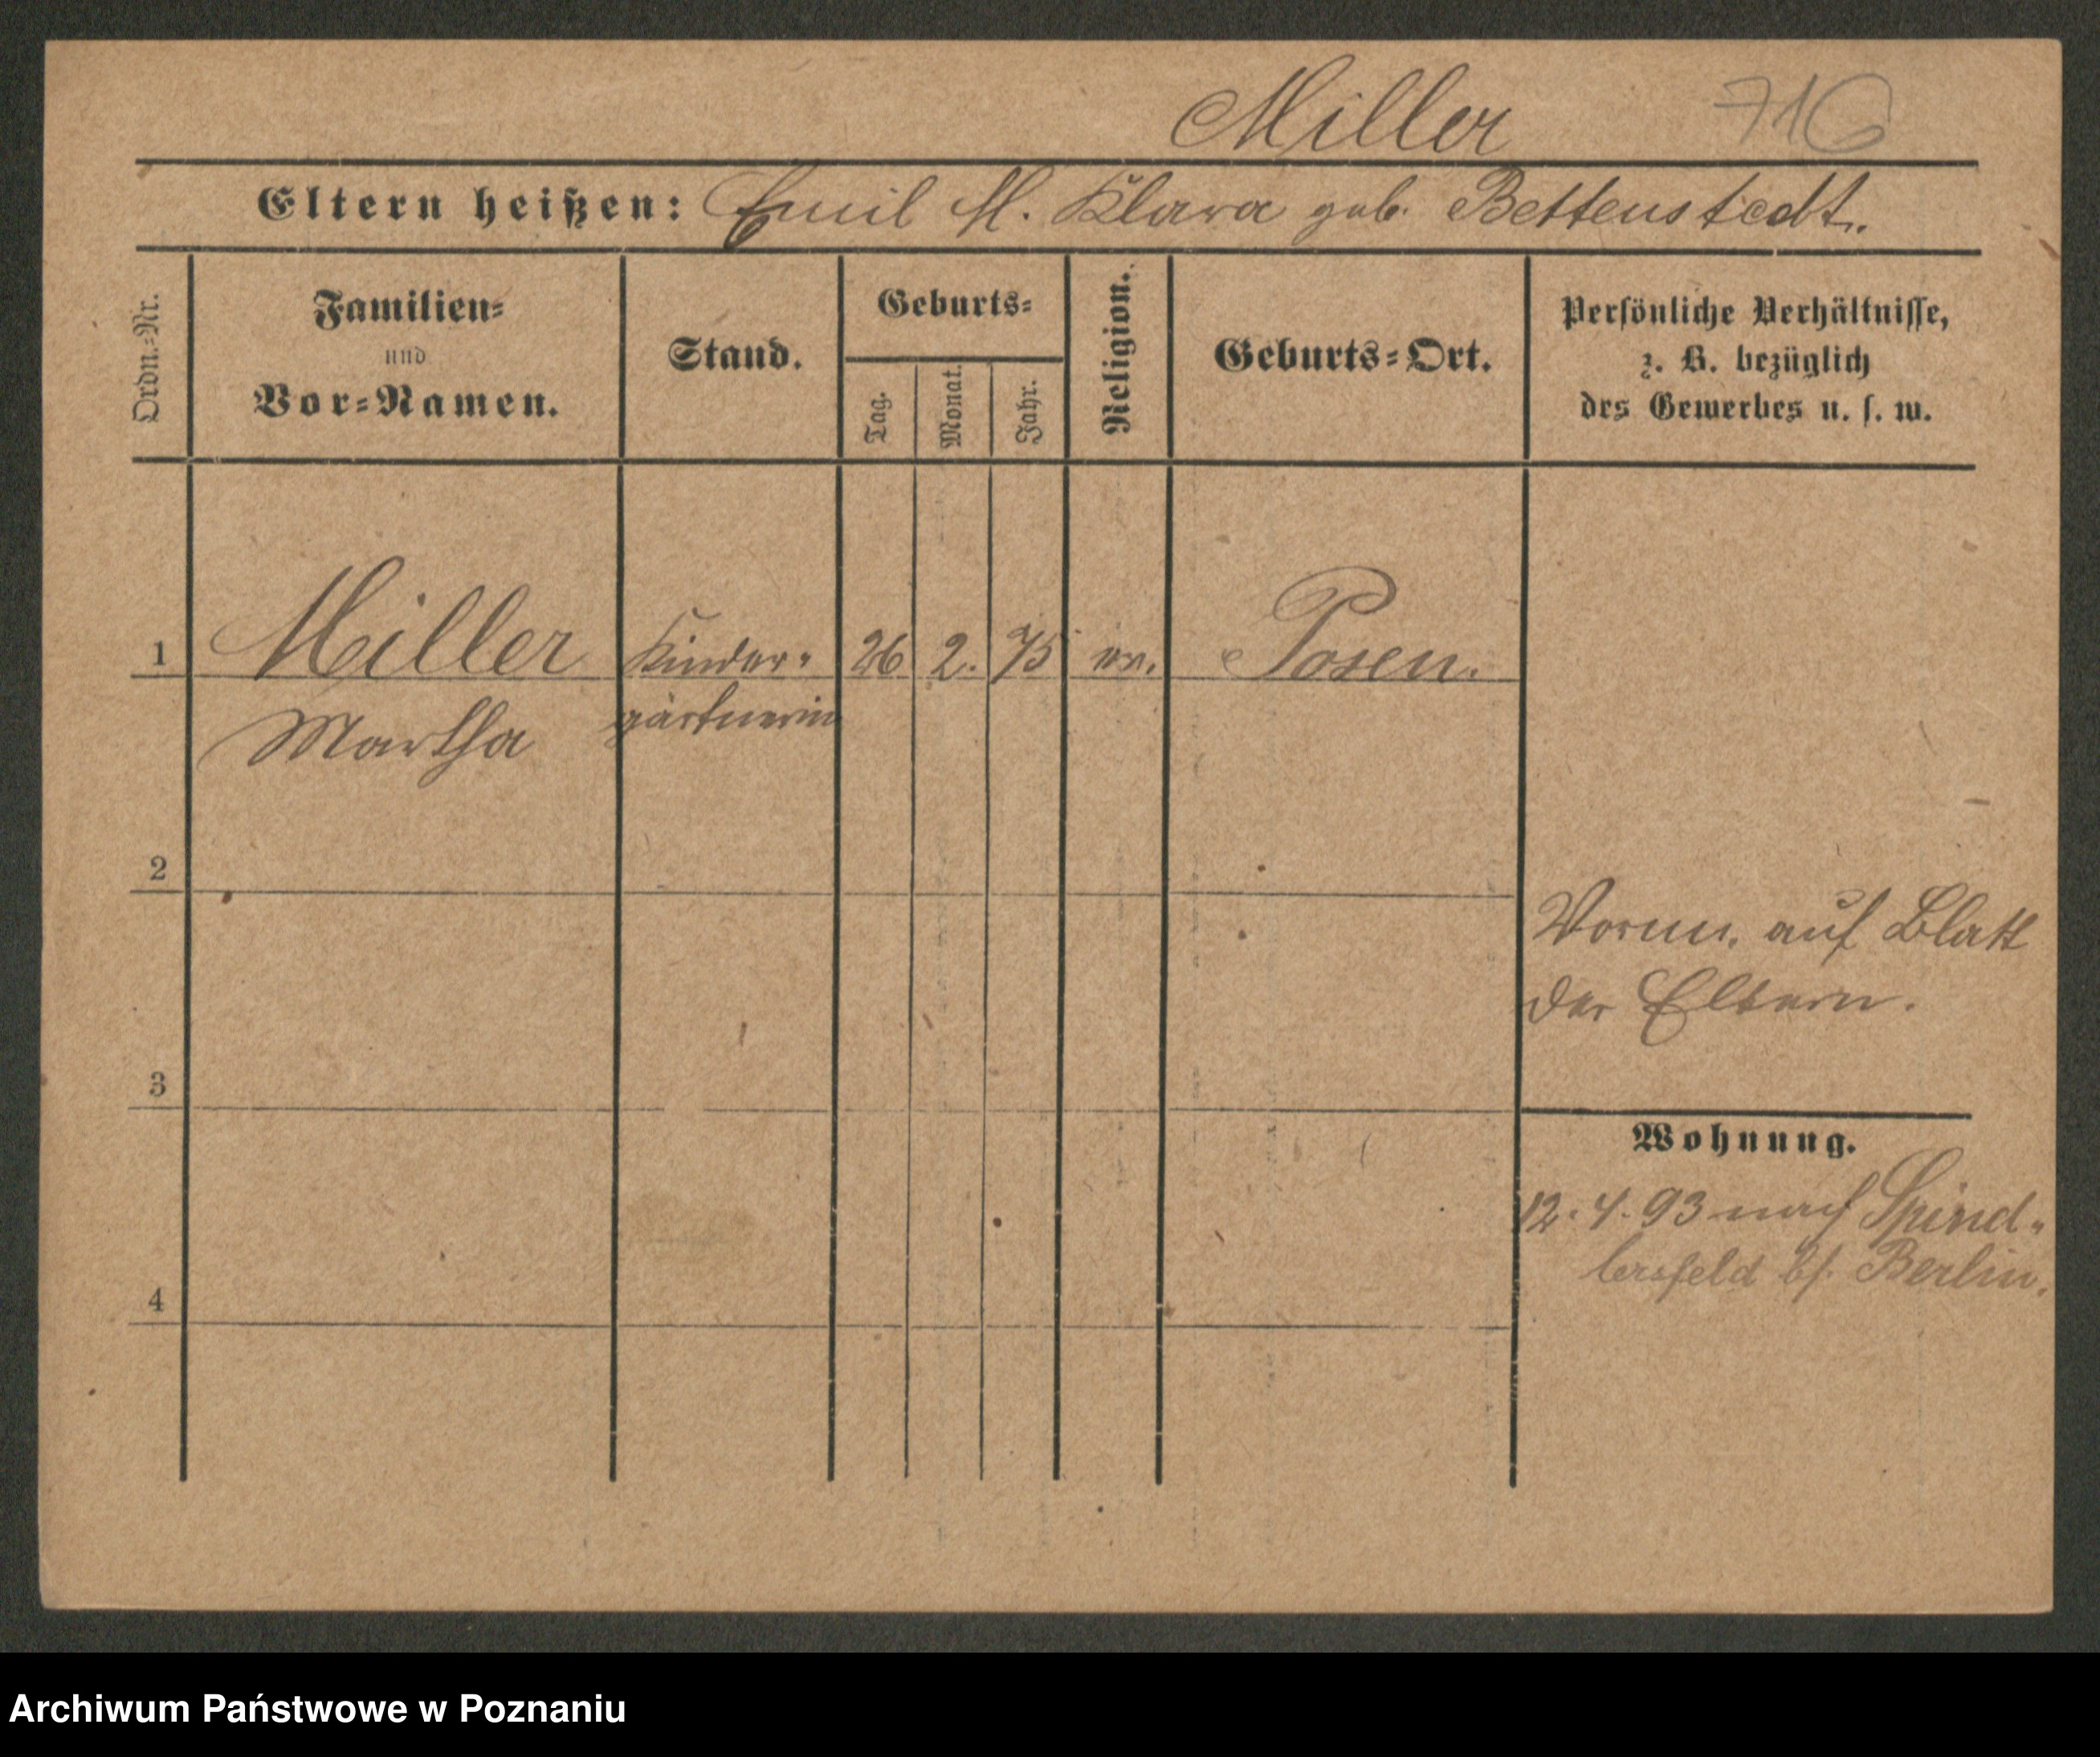 Miller 716
Eltern heißen: Emil M. Klara geb. Bettenstedt.
Ordn.-Nr.
Familien-
und
Vor-Namen.
Stand.
Geburts-
Tag.
Monat.
Jahr.
Religion.
Geburts-Ort.
Persönliche Verhältnisse,
z. B. bezüglich
des Gewerbes u. s. w.
1 Miller Kinder- 26 2. 75 ev. Posen.
Martha gärtnerin
2
Verm. auf Blatt
der Eltern.
3
Wohnung.
12. 4. 93 nach Spind-
lersfeld b/. Berlin.
4
Archiwum Państwowe w Poznaniu